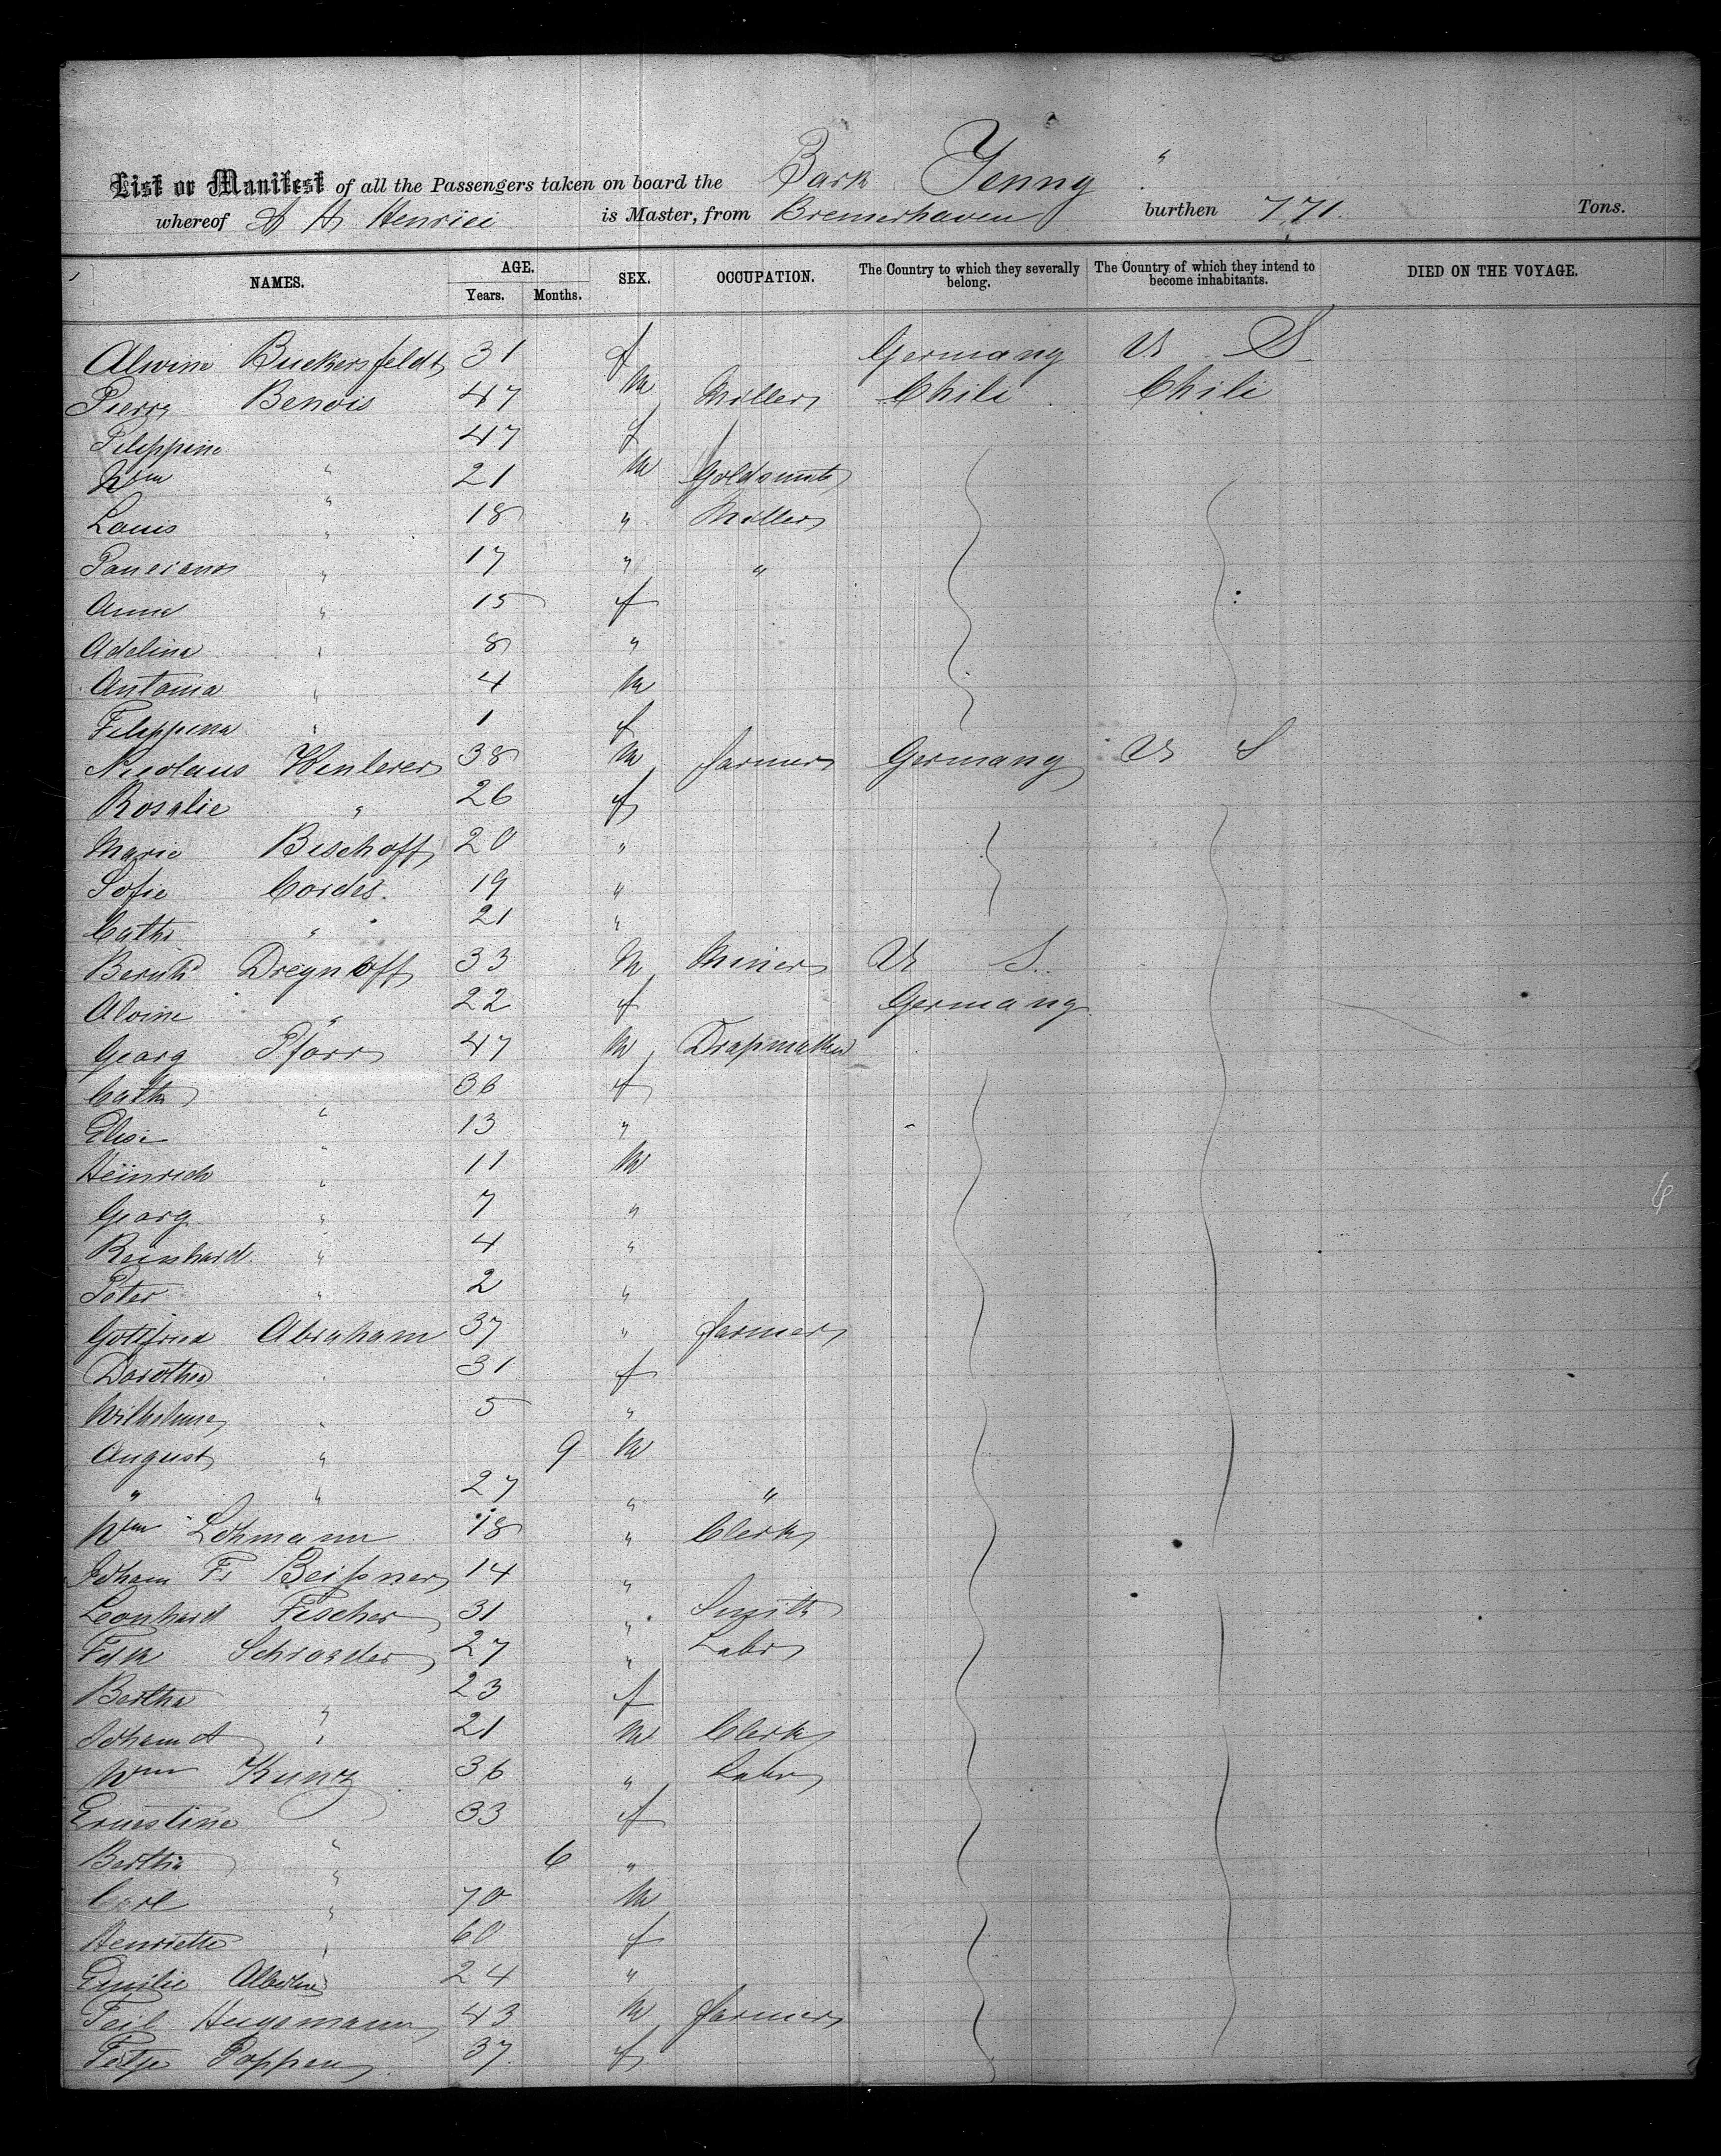 List or Manifest of all the Passengers taken on board the Bark Jenny
whereof A H Henrici is Master, from Bremerhaven burthen 771. Tons.
NAMES. AGE. Years. Months. SEX. OCCUPATION. The Country to which they severally belong. The Country of which they intend to become inhabitants. DIED ON THE VOYAGE.
Alwine Buckersfeldt 31 f Germany U S
Pierre Benois 47 m Miller Chili Chili
Filippine 47 f
Wm " 21 m Goldsmith
Louis " 18 " Miller
" 17 " "
Anna " 15 f
Adelina " 8 "
Antonia " 4 m
Filippina " 1 f
Nicolaus 38 m farmer Germany U S
Rosalie " 26 f
Marie Bischoff 20 "
Sofie Cordes. 19 "
Cath " 21 "
Bernhd 33 m Miner U S.
Alvine " 22 f Germany
Georg Pfarr 47 m
Cath " 36 f
Elise " 13 "
Heinrich " 11 m
Georg " 7 "
Reinhard " 4 "
Peter " 2 "
Gottfried Abraham 37 " farmer
Dorothea " 31 f
Wilhelmine " 5 "
August " 9 m
" " 27 " "
Wm Lohmann 18 " Clerk
Johann Fr Beißner 14 "
Leonhard Fischer 31 " Smith
Fdk Schroeder 27 " Labr
Bertha " 23 f
Johann A " 21 m Clerk
Wm Kunz 36 " Labr
Ernestine " 33 f
Bertha " 6 "
Carl " 70 m
Henriette " 60 f
Emilie 24 "
43 m farmer
Poppen 37. f